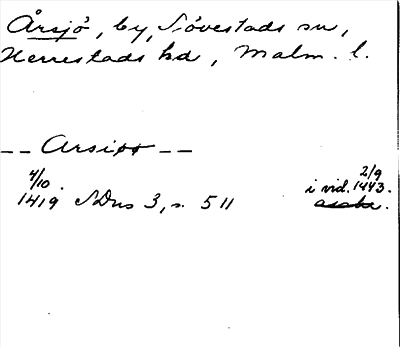 Årsjö, by, Sövestads sn,
Herrestads hd, Malm. l.
-- Arsiøø --
4/10. 2/9
1419 SDns 3, s. 511 i vid. 1443.